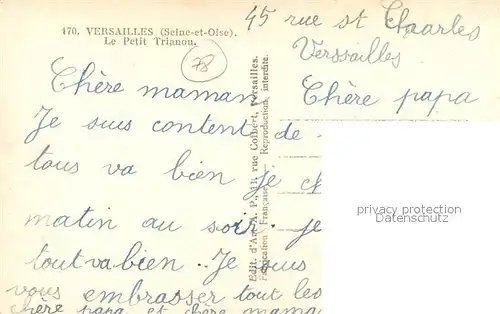 170. VERSAILLES (Seine-et-Oise).
Le Petit Trianon.
45 rue st Chaarles
Verssailles
78
Chère maman Chère papa
Je suis content de
tous va bien je
matin au soir. je
tout va bien.. Je suis
vous embrasser tout les
chère papa et chère mama
Edit. d'Art A. P., 11, rue Colbert, Versailles.
Fabrication Française - Reproduction interdite.
privacy protection
Datenschutz